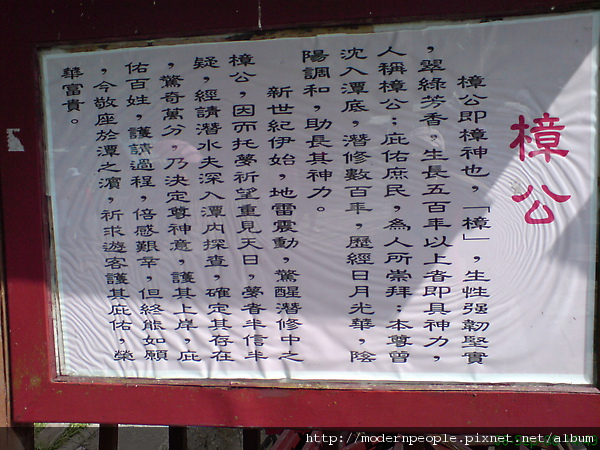 樟公
樟公即樟神也，「樟」，生性强韌堅實
，翠綠芳香，生長五百年以上者即具神力，
人稱樟公：庇佑庶民，為人所崇拜：本尊曾
沈入潭底，潛修數百年，歷經日月光華，陰
陽調和，助長其神力。
新世紀伊始，地雷震動，驚醒潛修中之
樟公，因而托夢祈望重見天日，夢者半信半
疑，經請潛水夫深入潭內探查，確定其存在
，驚奇萬分，乃決定尊神意，護其上岸，庇
佑百姓，護請過程，倍感艱辛，但終能如願
，今敬座於潭之濱，祈求遊客護其庇佑，榮
華富貴。
http://modernpeople.pixnet.net/album